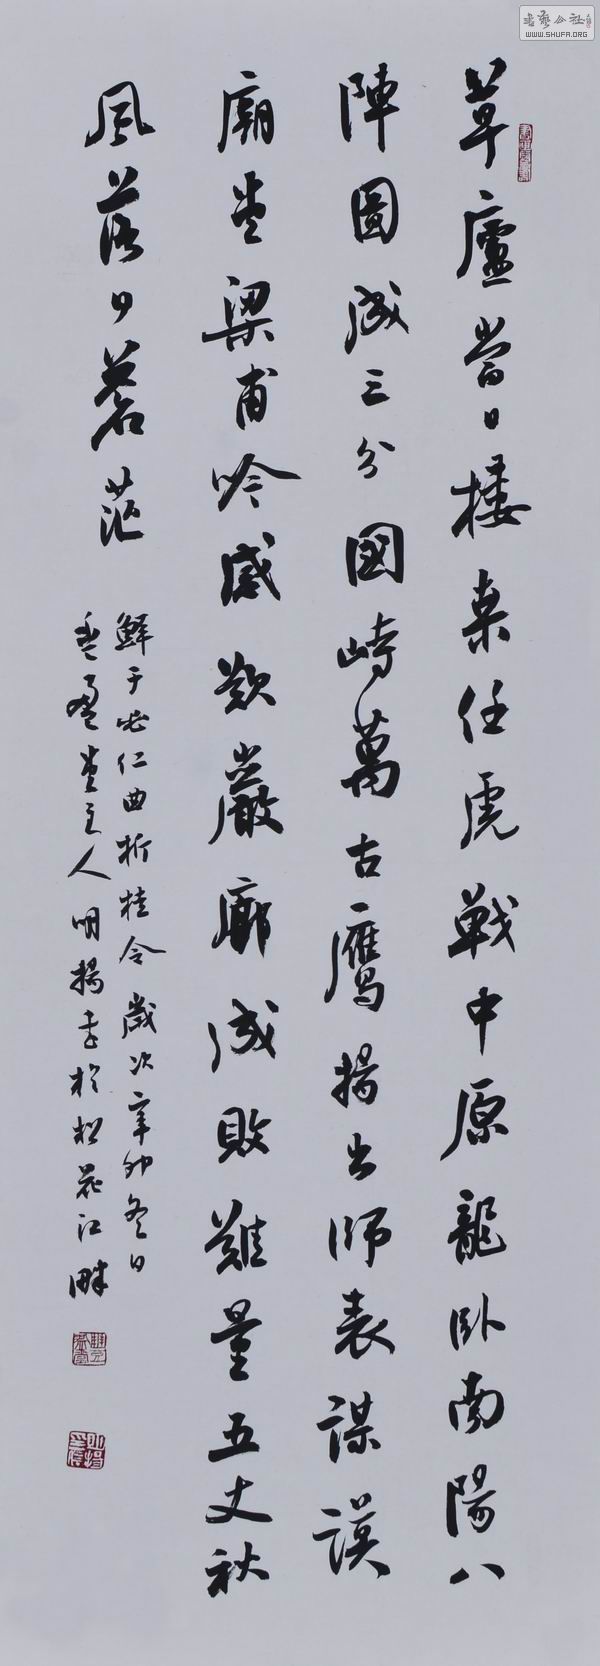 草廬當日樓桒任虎戰中原龍卧南陽八
陣圖成三分國峙萬古鷹揚出師表謀謨
廟堂梁甫吟感歎巖廊成敗難量五丈秋
風落日蒼茫
鮮于必仁曲折桂令歲次辛卯冬日
堂主人明揚書於松花江畔
书艺公社
WWW.SHUFA.ORG